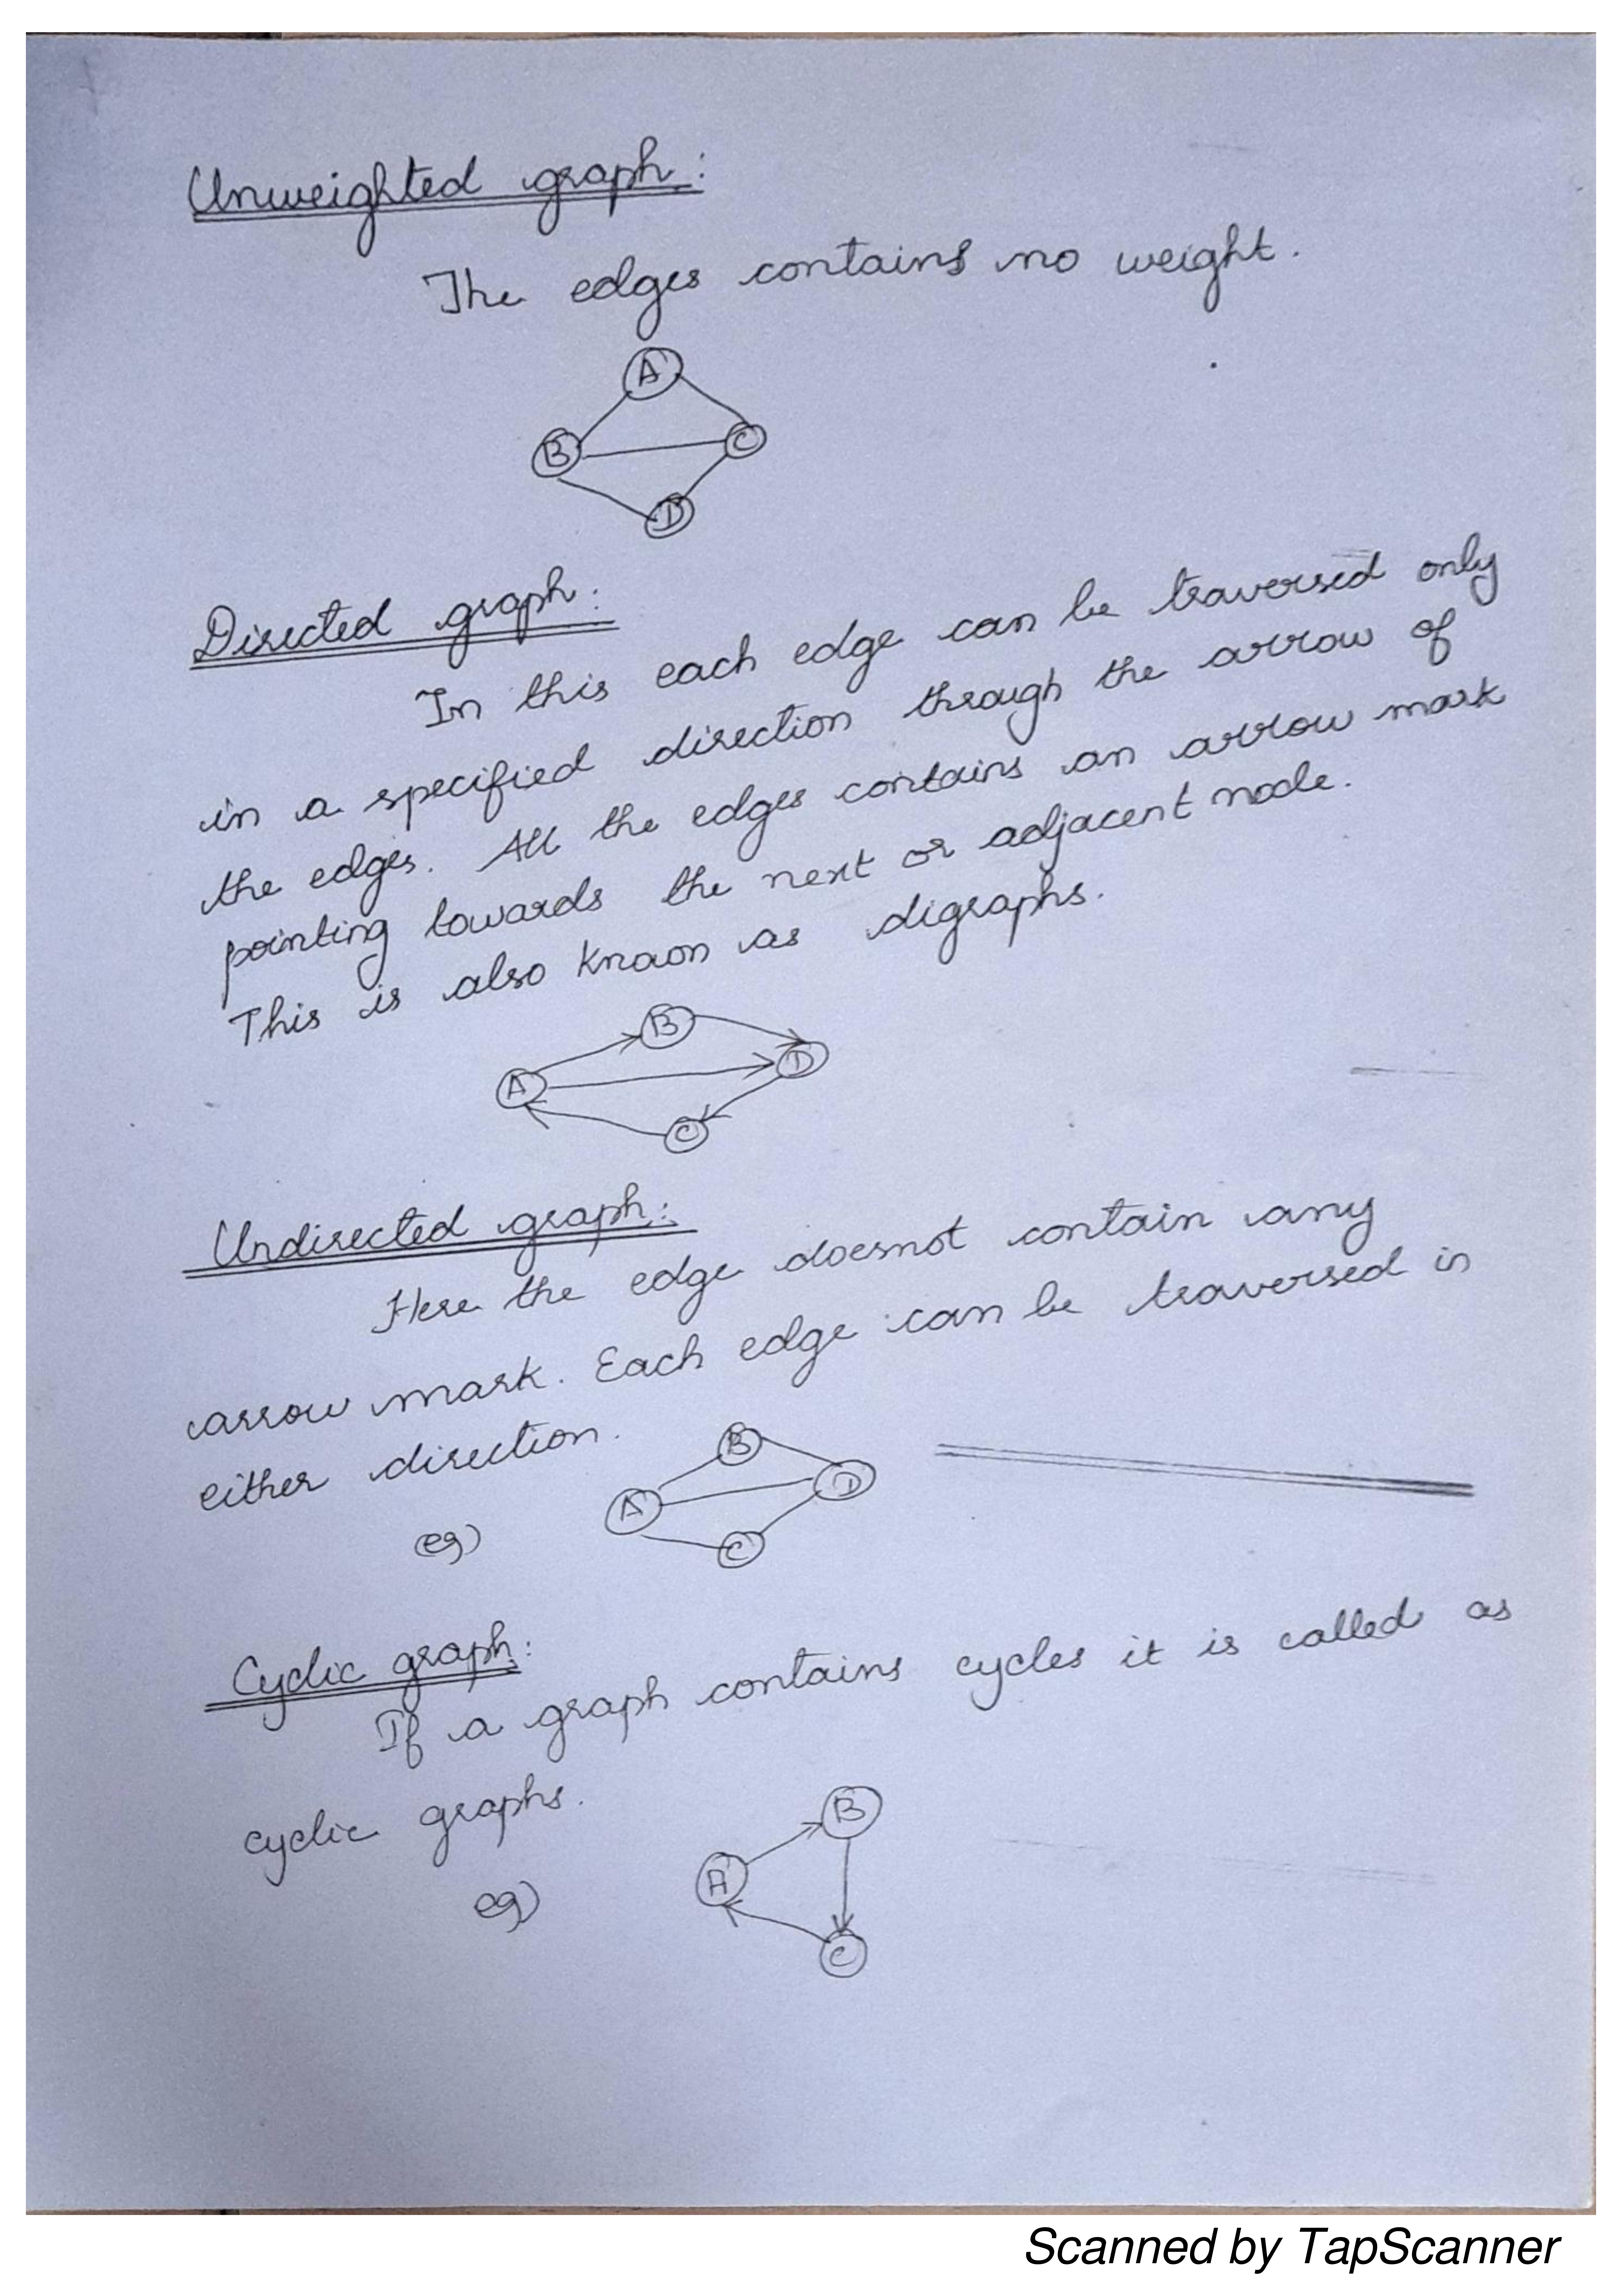 Unweighted graph:
The edges contains no weight.
A
B
C
D
Directed graph:
In this each edge can be traversed only
in a specified direction through the arrow of
the edges. All the edges contains an arrow mark
pointing towards the next or adjacent node.
This is also known as digraphs.
B
A
D
C
Undirected graph:
Here the edge doesnot contain any
arrow mark. Each edge can be traversed in
either direction.
B
A
D
eg)
C
Cyclic graph:
If a graph contains cycles it is called as
cyclic graphs.
B
A
eg)
C
Scanned by TapScanner